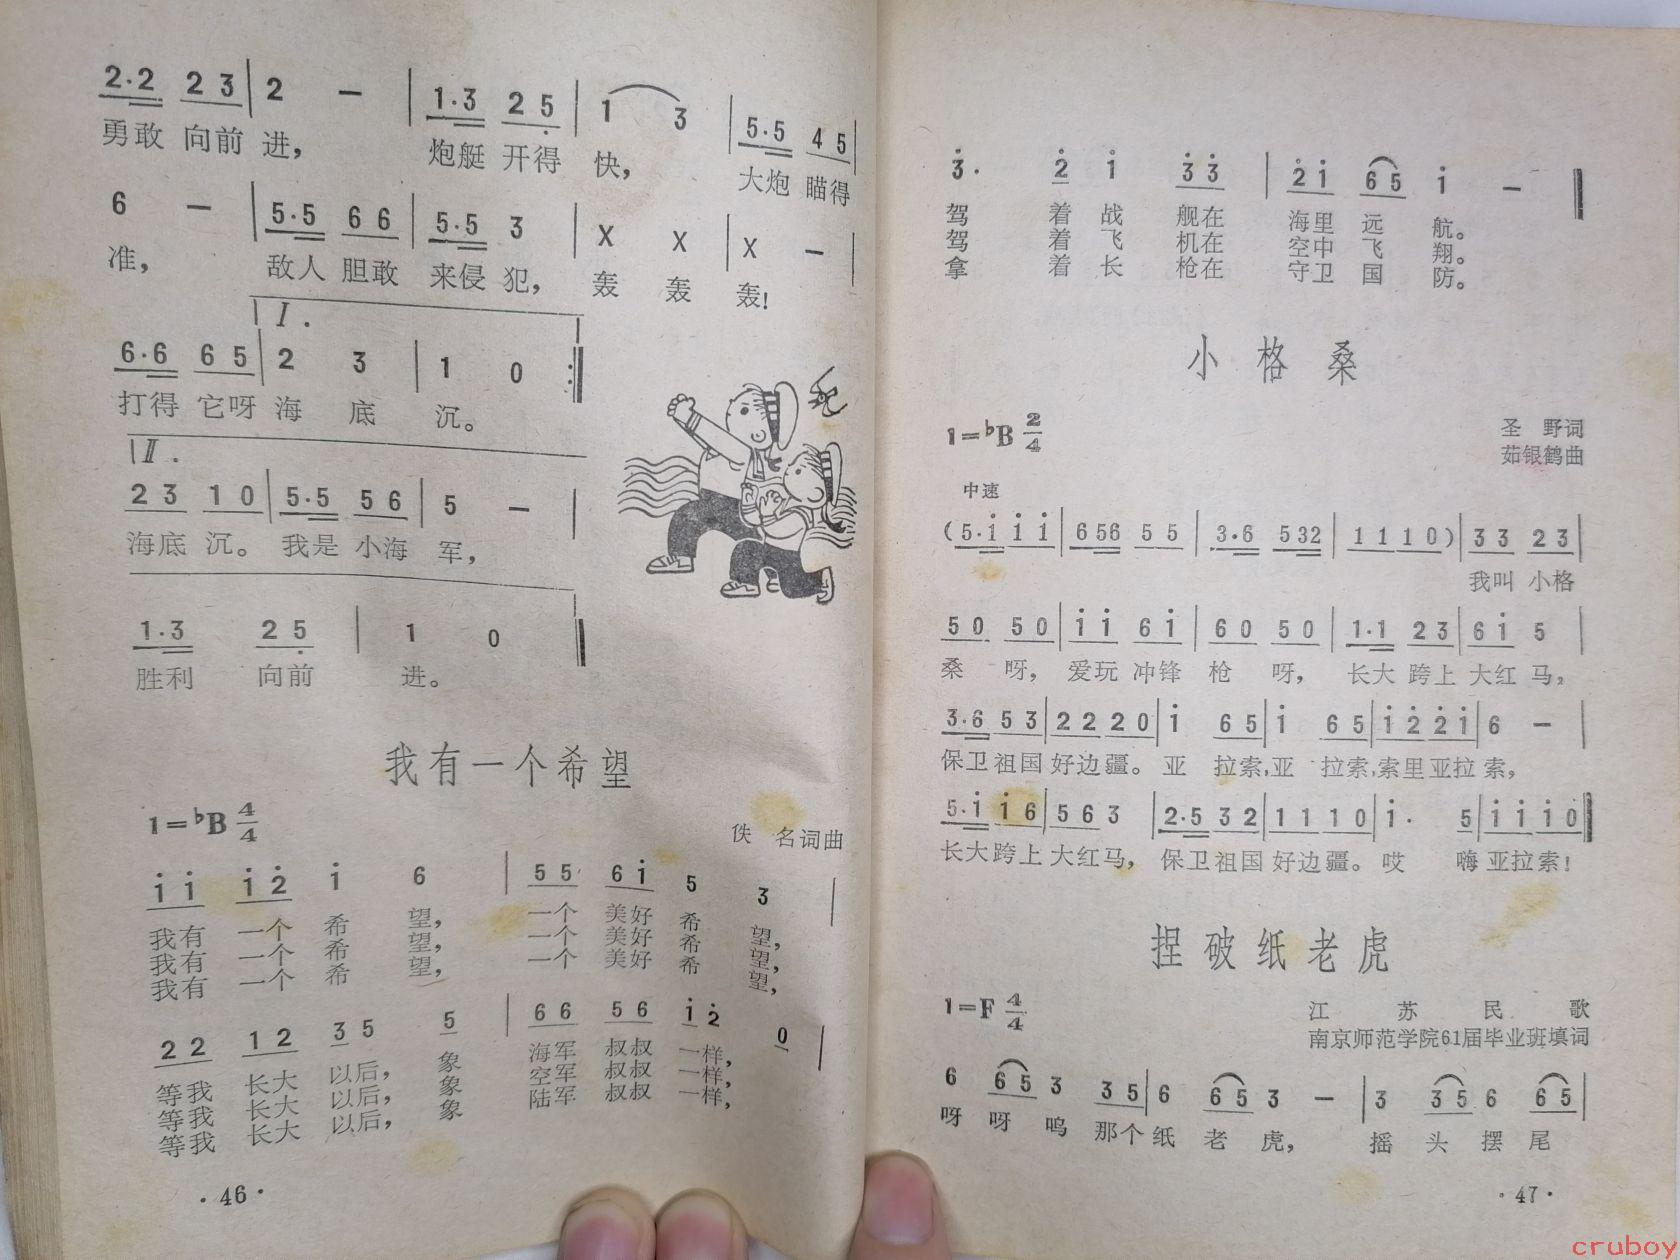 2·2 2 3 | 2 — | 1·3 2 5 | 1 3 | 5·5 4 5 |
勇敢 向前 进， 炮艇 开得 快， 大炮 瞄得
6 — | 5·5 6 6 | 5·5 3 | X X | X — |
准， 敌人 胆敢 来侵 犯， 轰 轰 轰！
I.
6·6 6 5 | 2 3 | 1 0 :|
打得 它呀 海 底 沉。
II.
2 3 1 0 | 5·5 5 6 | 5 — |
海底 沉。 我是 小海 军，
1·3 2 5 | 1 0 ‖
胜利 向前 进。
我有一个希望
1=♭B 4/4
佚 名词曲
i i i 2 i 6 | 5 5 6 i 5 3 |
我有 一个 希 望， 一个 美好 希 望，
我有 一个 希 望， 一个 美好 希 望，
我有 一个 希 望， 一个 美好 希 望，
2 2 1 2 3 5 5 | 6 6 5 6 i 2 0 |
等我 长大 以后， 象 海军 叔叔 一样，
等我 长大 以后， 象 空军 叔叔 一样，
等我 长大 以后， 象 陆军 叔叔 一样，
·46·
3· 2 i 3 3 | 2 i 6 5 i — ‖
驾 着 战 舰在 海里 远 航。
驾 着 飞 机在 空中 飞 翔。
拿 着 长 枪在 守卫 国 防。
小格桑
1=♭B 2/4
圣 野词
茹银鹤曲
中速
(5·i i i | 6 56 5 5 | 3·6 5 32 | 1 1 1 0) | 3 3 2 3 |
我叫 小格
5 0 5 0 | i i 6 i | 6 0 5 0 | 1·1 2 3 | 6 i 5 |
桑 呀， 爱玩 冲锋 枪 呀， 长大 跨上 大红 马，
3·6 5 3 | 2 2 2 0 | i 6 5 | i 6 5 | i 2 2 i | 6 — |
保卫 祖国 好边疆。 亚 拉索，亚 拉索，索里亚拉 索，
5·i i 6 | 5 6 3 | 2·5 3 2 | 1 1 1 0 | i· 5 | i i i 0 ‖
长大 跨上 大红马， 保卫 祖国 好边疆。 哎 嗨 亚拉索！
捏破纸老虎
1=F 4/4
江苏民歌
南京师范学院61届毕业班填词
6 6 5 3 3 5 | 6 6 5 3 — | 3 3 5 6 6 5 |
呀 呀 呜 那个 纸 老 虎， 摇 头 摆 尾
·47·
cruboy